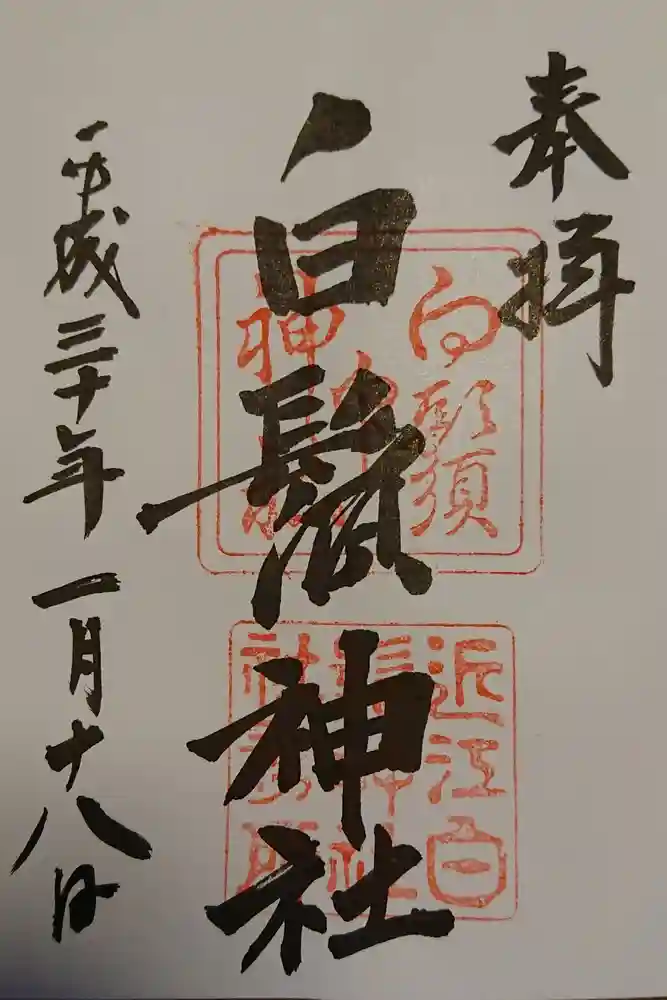 奉拝
白鬚神社
平成三十年一月十八日
白鬚
神社
近江白
鬚神社
社務所